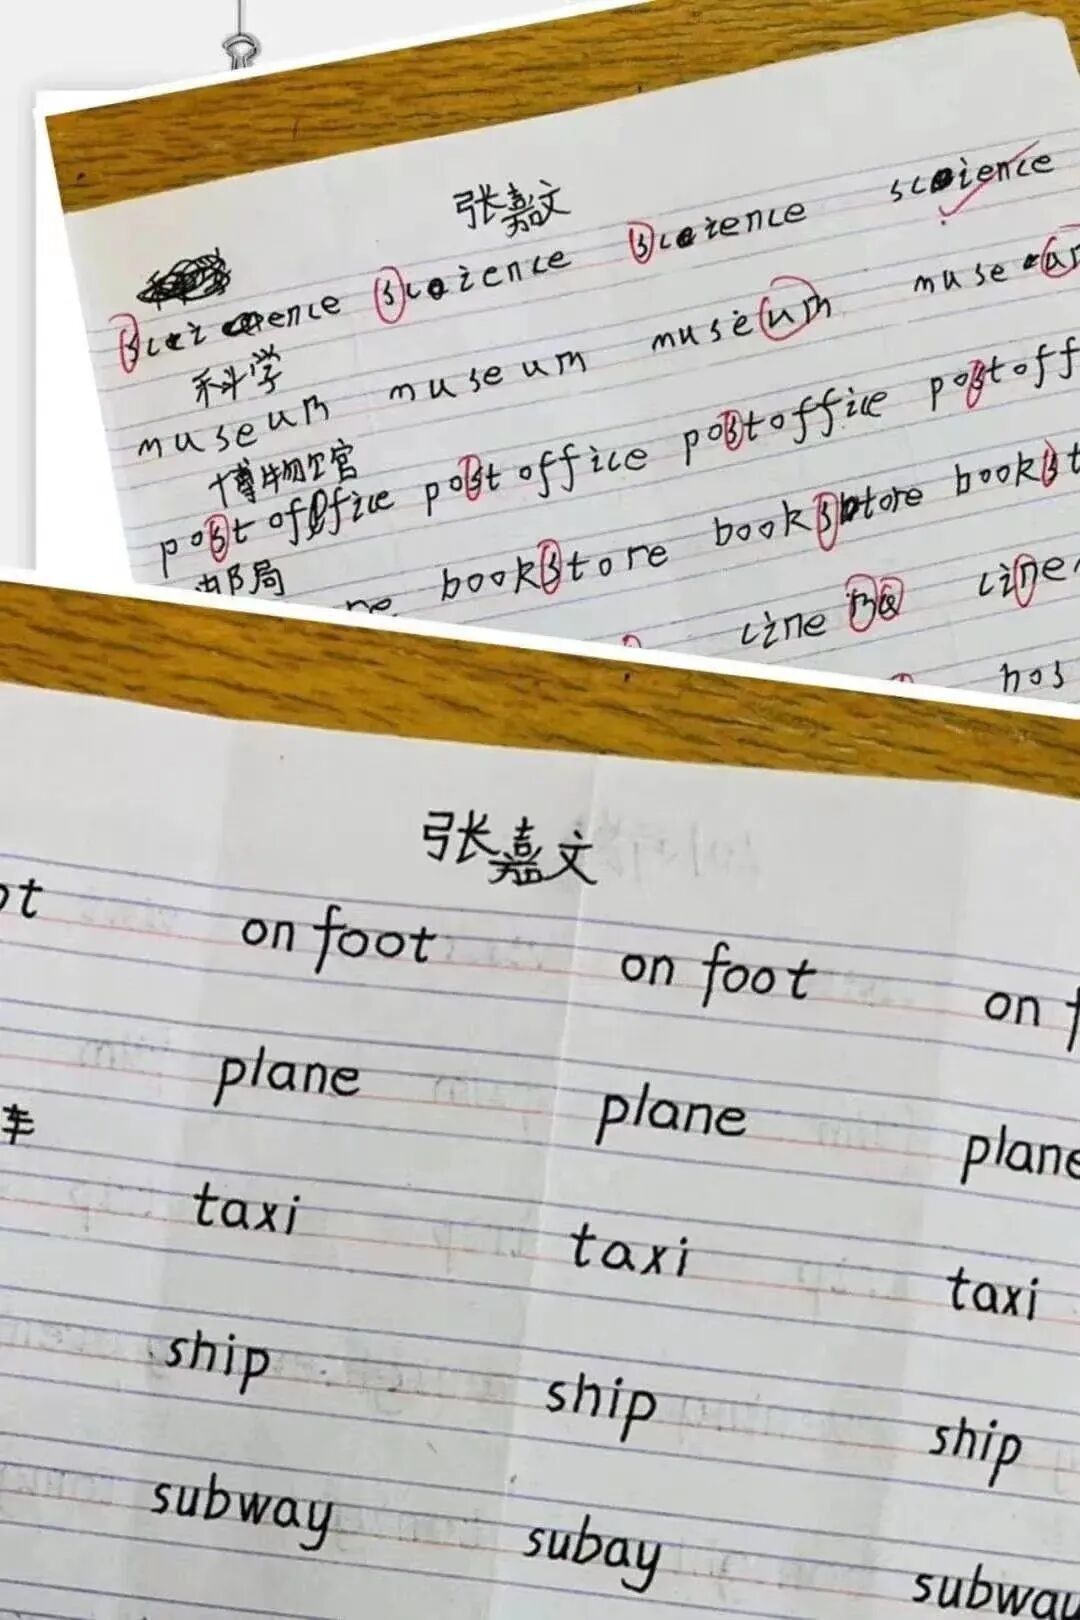 张嘉文
science science science science
科学
museum museum museum muse
博物官
post office post office postoffice postoff
邮局
bookstore bookstore bookst
cine cine
hos
张嘉文
ot on foot on foot on f
plane plane plane
车
taxi taxi taxi
ship ship ship
subway subay subway